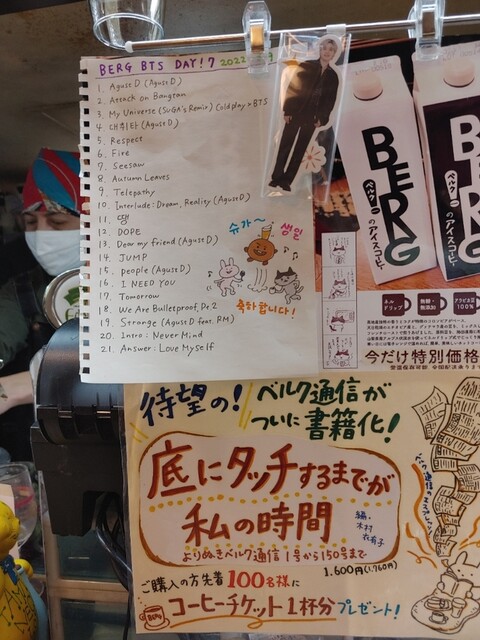 BERG BTS DAY!7 2022
1. Agust D (Agust D)
2. Attack on Bangtan
3. My Universe (SUGA's Remix) Coldplay×BTS
4. 대취타 (Agust D)
5. Respect
6. Fire
7. Seesaw
8. Autumn Leaves
9. Telepathy
10. Interlude: Dream, Reality (Agust D)
11. 땡
12. DOPE
13. Dear my friend (Agust D)
14. JUMP
15. people (Agust D)
16. I NEED YOU
17. Tomorrow
18. We Are Bulletproof, Pt.2
19. Strange (Agust D feat. RM)
20. Intro: Never Mind
21. Answer: Love Myself
슈가~ 생일
축하합니다!
BERG
ベルクのアイスコーヒー
BERG
のアイスコーヒー
ネル
ドリップ
無糖・
無添加
アラビカ豆
100%
今だけ特別価格
常温保存可能
待望の! ベルク通信が
ついに書籍化!
底にタッチするまでが
私の時間
編・木村衣有子
よりぬきベルク通信 1号から150号まで
1,600円(1,760円)
ご購入の方先着100名様に
コーヒーチケット1杯分プレゼント!